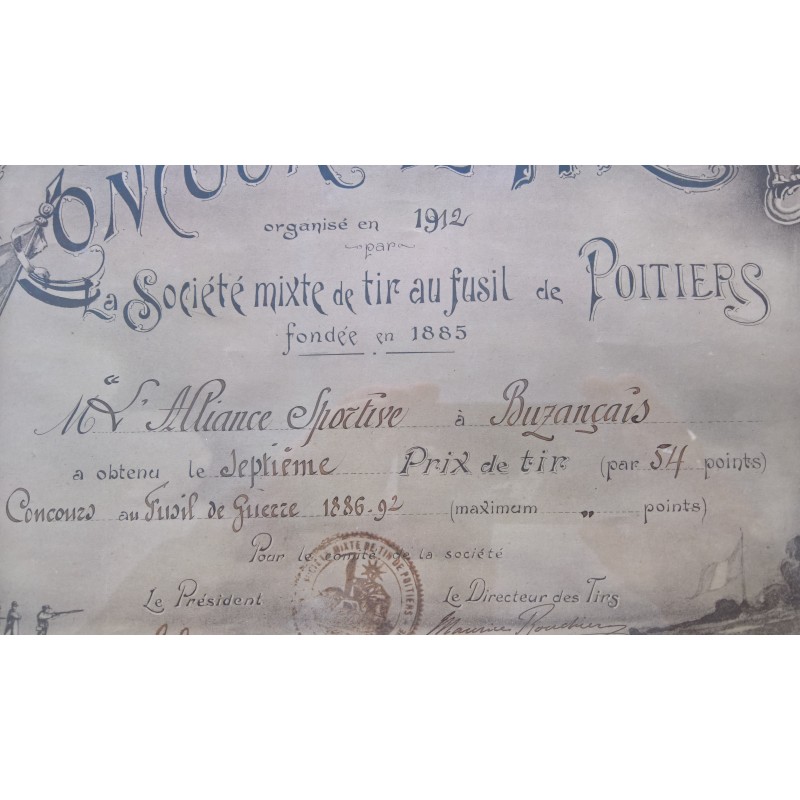 CONCOURS DE TIR
organisé en 1912
par
La Société mixte de tir au fusil de POITIERS
fondée en 1885
M “L'Alliance Sportive à Buzançais
a obtenu le Septième Prix de tir (par 54 points)
Concours au Fusil de Guerre 1886-92 (maximum „ points)
Pour le comité de la société
MIXTE DE TIR DE POITIERS
Le Président Le Directeur des Tirs
Maurice